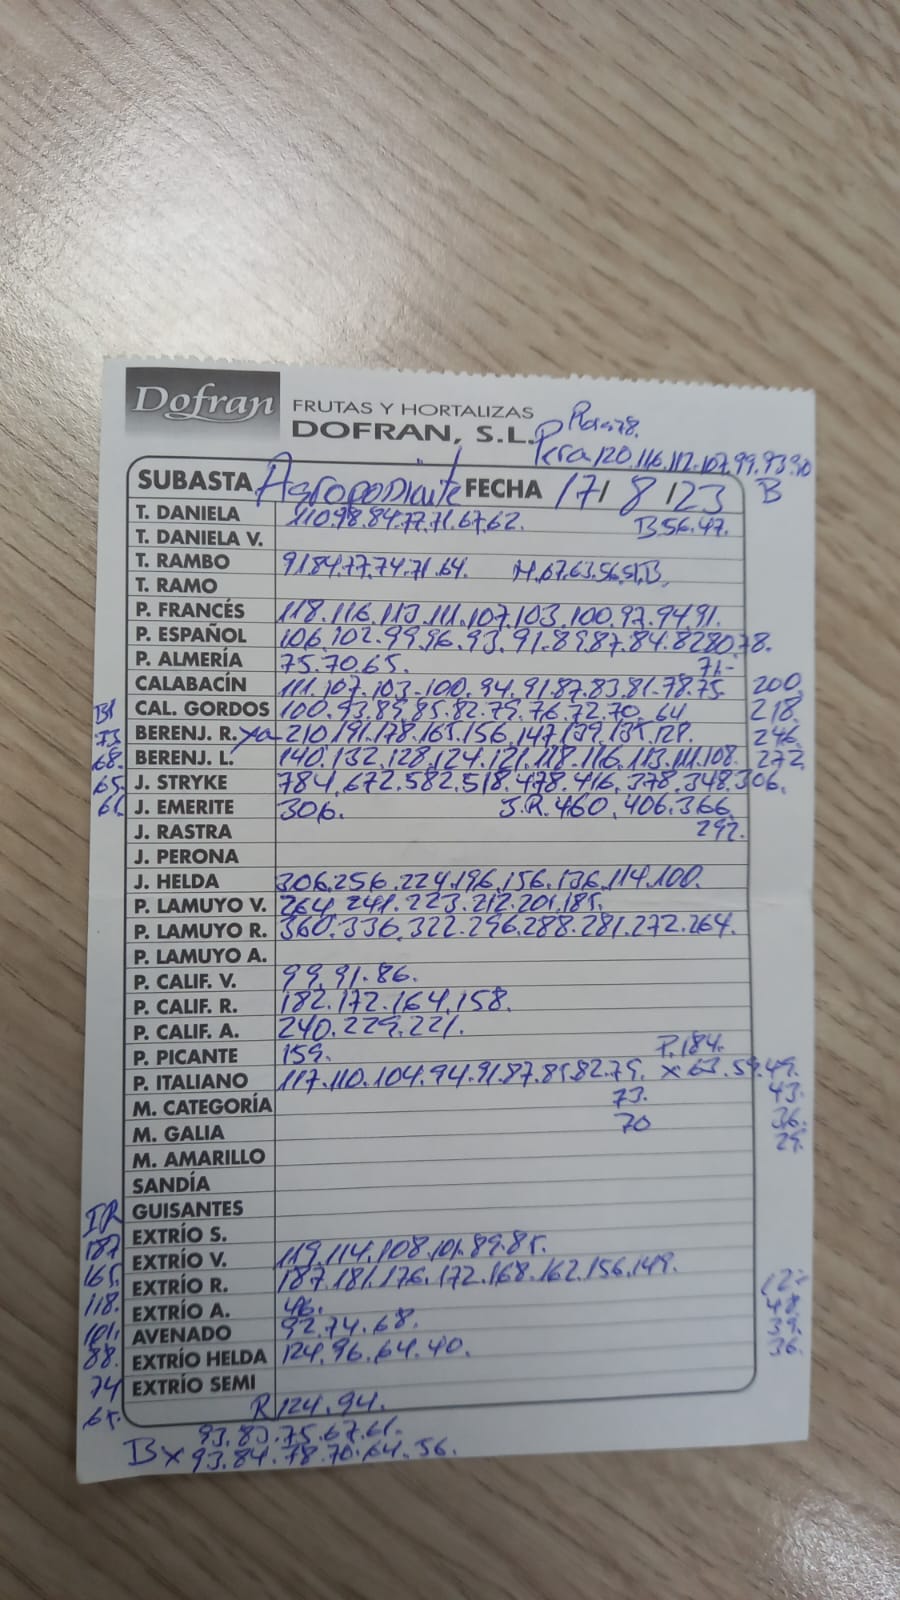 Dofran FRUTAS Y HORTALIZAS
DOFRAN, S.L.
Pera 120.116.112.107.99.93.90
SUBASTA Agroponiente FECHA 17/8/23 B
T. DANIELA 110.98.84.77.71.67.62. B.56.47.
T. DANIELA V.
T. RAMBO 91.84.77.74.71.64. M.67.63.56.51.B.
T. RAMO
P. FRANCÉS 118.116.113.111.107.103.100.97.94.91.
P. ESPAÑOL 106.102.99.96.93.91.89.87.84.82.80.78.
P. ALMERÍA 75.70.65. 71.-
CALABACÍN 111.107.103.100.94.91.87.83.81.78.75. 200
CAL. GORDOS 100.93.89.85.82.79.76.72.70.64 218.
73 BERENJ. R. 210.191.178.165.156.147.139.135.128. 246
68. BERENJ. L. 140.132.128.124.121.118.116.113.111.108. 272
65 J. STRYKE 784.672.582.518.478.416.378.348.306.
61. J. EMERITE 306. J.R.460.406.366.
J. RASTRA 292.
J. PERONA
J. HELDA 306.256.224.196.156.136.114.100.
P. LAMUYO V. 264.241.223.212.201.185.
P. LAMUYO R. 360.336.322.296.288.281.272.264.
P. LAMUYO A.
P. CALIF. V. 99.91.86.
P. CALIF. R. 182.172.164.158.
P. CALIF. A. 240.229.221.
P. PICANTE 159. P.184.
P. ITALIANO 117.110.104.94.91.87.85.82.79. x 63.59.49.
M. CATEGORÍA 73. 43.
M. GALIA 70 36.
M. AMARILLO 29.
SANDÍA
GUISANTES
EXTRÍO S.
187 EXTRÍO V. 119.114.108.101.89.85.
165. EXTRÍO R. 187.181.176.172.168.162.156.149.
118. EXTRÍO A. 46. 48.
101. AVENADO 92.74.68. 39.
88. EXTRÍO HELDA 124.96.64.40. 36.
74 EXTRÍO SEMI
65. R 124.94.
93.83.75.67.61.
Bx 93.84.78.70.64.56.